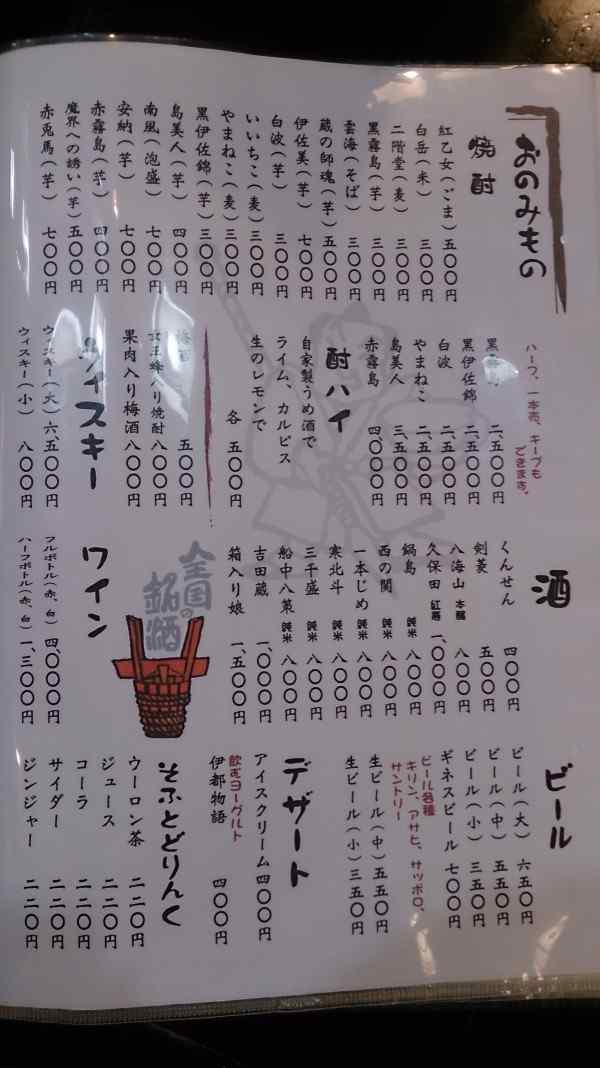 おのみもの
焼酎
紅乙女(ごま)五〇〇円
白岳(米)三〇〇円
二階堂(麦)三〇〇円
黒霧島(芋)三〇〇円
雲海(そば)三〇〇円
蔵の師魂(芋)五〇〇円
伊佐美(芋)七〇〇円
白波(芋)三〇〇円
いいちこ(麦)三〇〇円
やまねこ(麦)三〇〇円
黒伊佐錦(芋)三〇〇円
島美人(芋)四〇〇円
南風(泡盛)七〇〇円
安納(芋)七〇〇円
赤霧島(芋)四〇〇円
魔界への誘い(芋)五〇〇円
赤兎馬(芋)七〇〇円
ハーフ、一本売、キープも
できます。
黒 二、五〇〇円
黒伊佐錦 二、五〇〇円
白波 二、五〇〇円
やまねこ 二、五〇〇円
島美人 三、五〇〇円
赤霧島 四、〇〇〇円
酎ハイ
自家製うめ酒で
ライム、カルピス
生のレモンで
各 五〇〇円
五〇〇円
女王蜂入り焼酎 八〇〇円
果肉入り梅酒 八〇〇円
ウィスキー
ウィスキー(大)六、五〇〇円
ウィスキー(小)八〇〇円
酒
くんせん 四〇〇円
剣菱 五〇〇円
八海山 本醸 八〇〇円
久保田 紅寿 一、〇〇〇円
鍋島 純米 八〇〇円
西の関 純米 八〇〇円
一本じめ 純米 八〇〇円
寒北斗 純米 八〇〇円
三千盛 純米 八〇〇円
船中八策 純米 八〇〇円
吉田蔵 一、〇〇〇円
箱入り娘 一、五〇〇円
全国の
銘酒
ワイン
フルボトル(赤、白)四、〇〇〇円
ハーフボトル(赤、白)一、三〇〇円
ビール
ビール(大)六五〇円
ビール(中)五五〇円
ビール(小)三五〇円
ギネスビール 七〇〇円
ビール各種
キリン、アサヒ、サッポロ、
サントリー
生ビール(中)五五〇円
生ビール(小)三五〇円
デザート
アイスクリーム 四〇〇円
飲むヨーグルト
伊都物語 四〇〇円
そふとどりんく
ウーロン茶 二二〇円
ジュース 二二〇円
コーラ 二二〇円
サイダー 二二〇円
ジンジャー 二二〇円